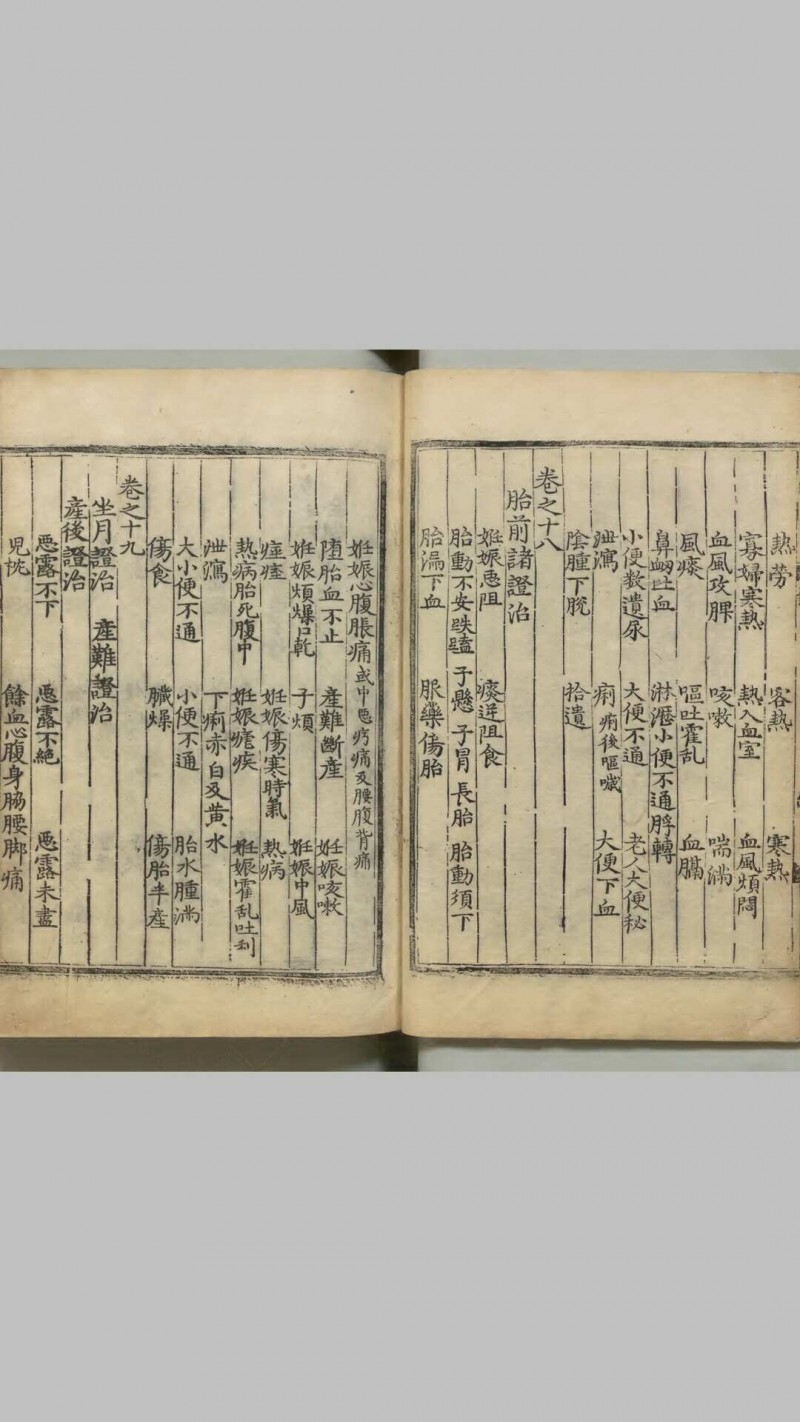 熱勞 客熱 寒熱
寡婦寒熱 熱入血室 血風煩悶
血風攻脾 咳嗽 喘滿
風瘙 嘔吐霍乱
鼻衂吐血 淋瀝小便不通脬轉 血膈
小便数遺尿 大便不通 老人大便秘
泄瀉 痢 痢後嘔噦 大便下血
陰腫下脫 拾遺
卷之十八
胎前諸證治
妊娠惡阻 痰逆阻食
胎動不安跌磕 子懸 子冒 長胎 胎動須下
胎漏下血 服藥傷胎
妊娠心腹脹痛或中惡㽲痛及腰腹背痛
墮胎血不止 産難斷産 妊娠咳嗽
妊娠煩燥口乾 子煩 妊娠中風
痙痓 妊娠傷寒時氣 熱病
熱病胎死腹中 妊娠瘧疾 妊娠霍乱吐利
泄瀉 下痢赤白及黄水
大小便不通 小便不通 胎水腫滿
傷食 臓燥 傷胎半産
卷之十九
坐月證治 産難證治
産後證治
惡露不下 惡露不絶 惡露未盡
児枕 餘血心腹身脇腰脚痛